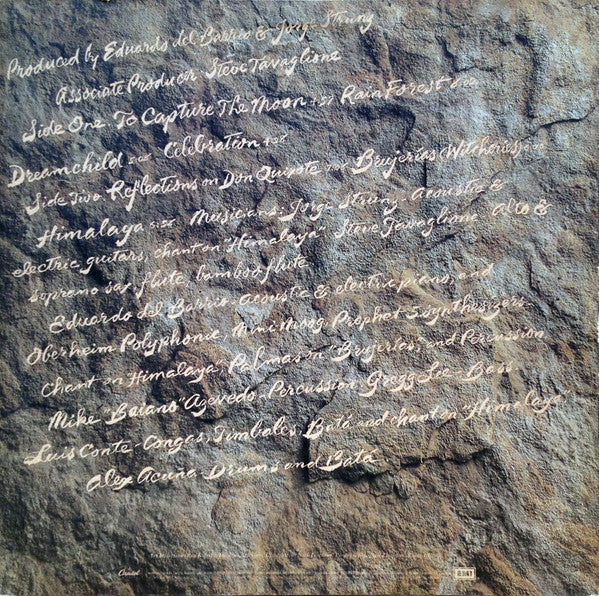 Produced by Eduardo del Barrio & Jorge Strunz
Associate Producer - Steve Tavaglione
Side One - To Capture The Moon 4:37 Rain Forest
Dreamchild Celebration
Side Two - Reflections on Don Quixote Brujerías (Witcheries)
Himalaya Musicians: Jorge Strunz - Acoustic &
electric guitars, chant on "Himalaya" - Steve Tavaglione - Alto &
soprano sax, flute, bamboo flute
Eduardo del Barrio - Acoustic & electric piano, and
Oberheim Polyphonic, Mini Moog, Prophet 5 synthesizers
chant on Himalaya, Palmas on "Brujerias", and Percussion
Mike "Baiano" Azevedo - Percussion - Gregg Lee - Bass
Luis Conte - Congas, Timbales, Batá and chant on "Himalaya"
Alex Acuña - Drums and Batá
Capitol
EMI